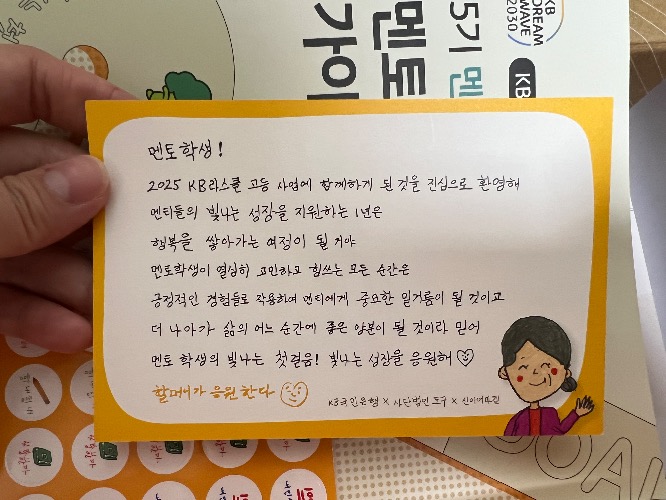 멘토학생!
2025 KB라스쿨 고등 사업에 함께하게 된 것을 진심으로 환영해
멘티들의 빛나는 성장을 지원하는 1년은
행복을 쌓아가는 여정이 될 거야
멘토학생이 열심히 고민하고 힘쓰는 모든 순간은
긍정적인 경험들로 작용하여 멘티에게 중요한 밑거름이 될 것이고
더 나아가 삶의 어느 순간에 좋은 양분이 될 것이라 믿어
멘토 학생의 빛나는 첫걸음! 빛나는 성장을 응원해
할머니가 응원한다
KB국민은행 × 사단법인 점프 ×
KB
DREAM
WAVE
2030
KB
5기 멘
멘토
가이
GOAL